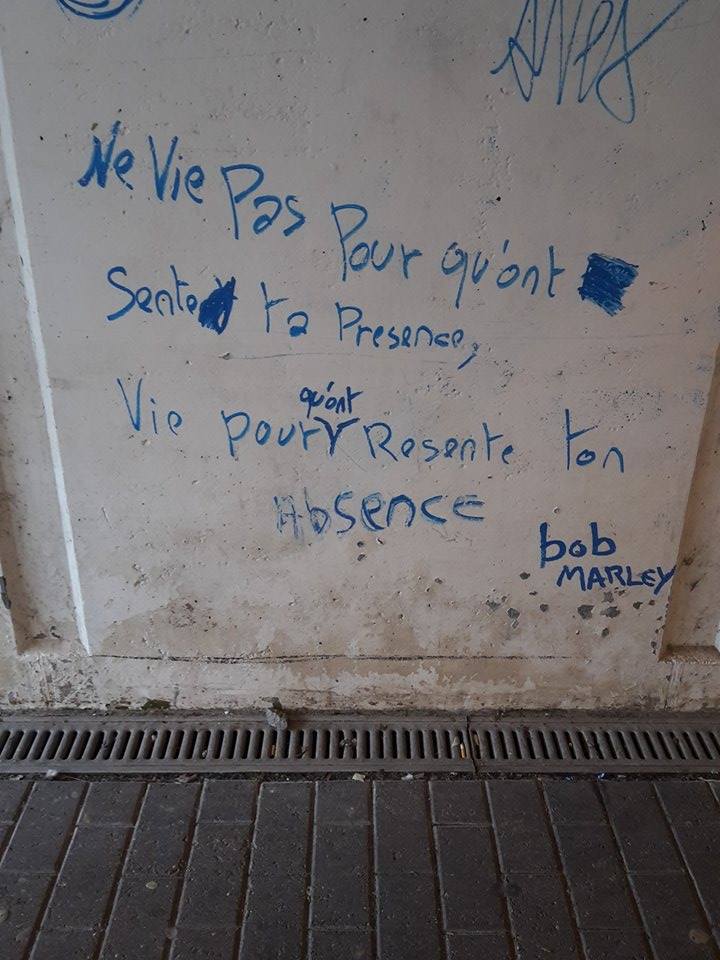 Ne Vie Pas Pour qu'ont
Sente ta Presence,
Vie pour qu'ont Resente ton
Absence
bob
MARLEY